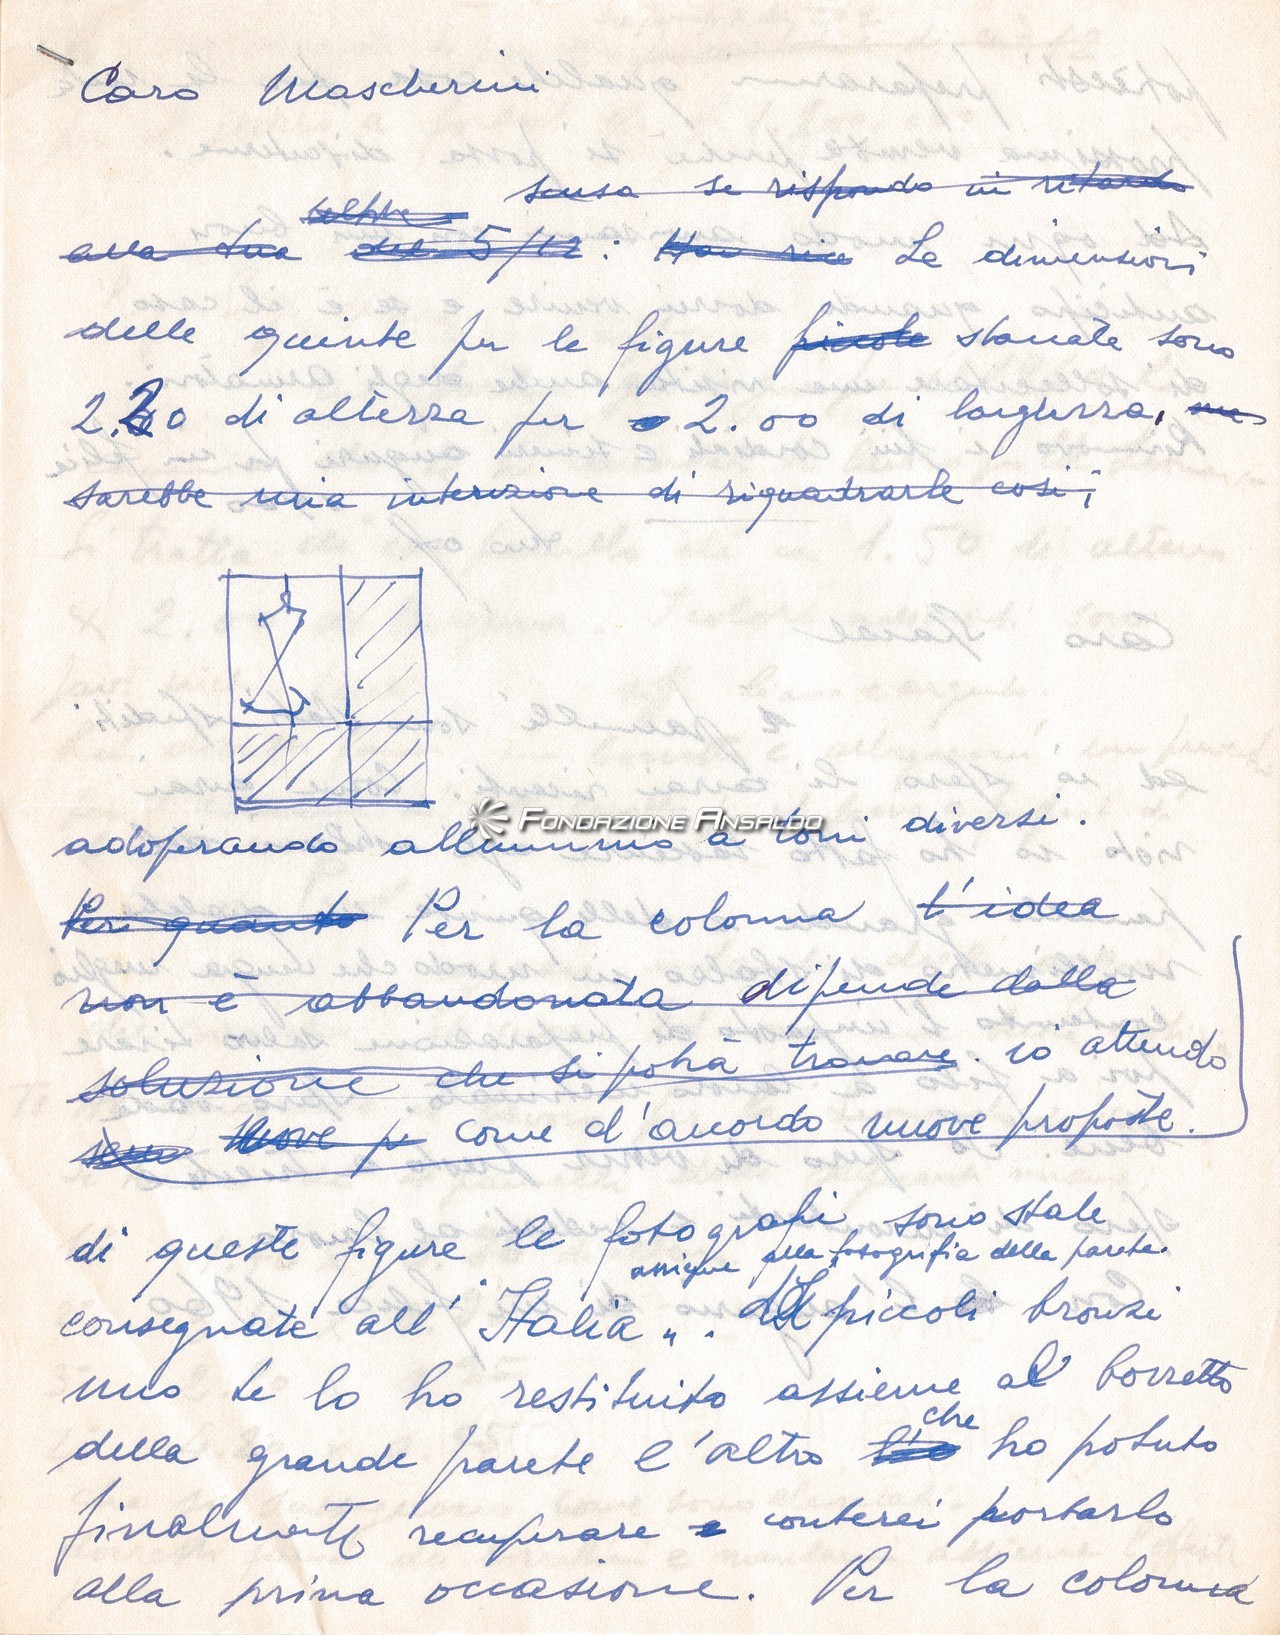 Caro Mascherini
scusa se rispondo in ritardo
alla tua del 5/12: Le dimensioni
delle quinte per le figure piccole staccate sono
2.20 di altezza per 2.00 di larghezza,
sarebbe mia intenzione di riquadrarle così;
FONDAZIONE ANSALDO
adoperando alluminio a toni diversi.
Per quanto Per la colonna l'idea
non è abbandonata dipende dalla
soluzione che si potrà trovare. io attendo
nuove come d'accordo nuove proposte.
di queste figure le fotografie sono state
assieme alla fotografia della parete.
consegnate all'"Italia". piccoli bronzi
uno te lo ho restituito assieme al bozzetto
che
della grande parete l'altro ho potuto
finalmente recuperare e conterei portarlo
alla prima occasione. Per la colonna